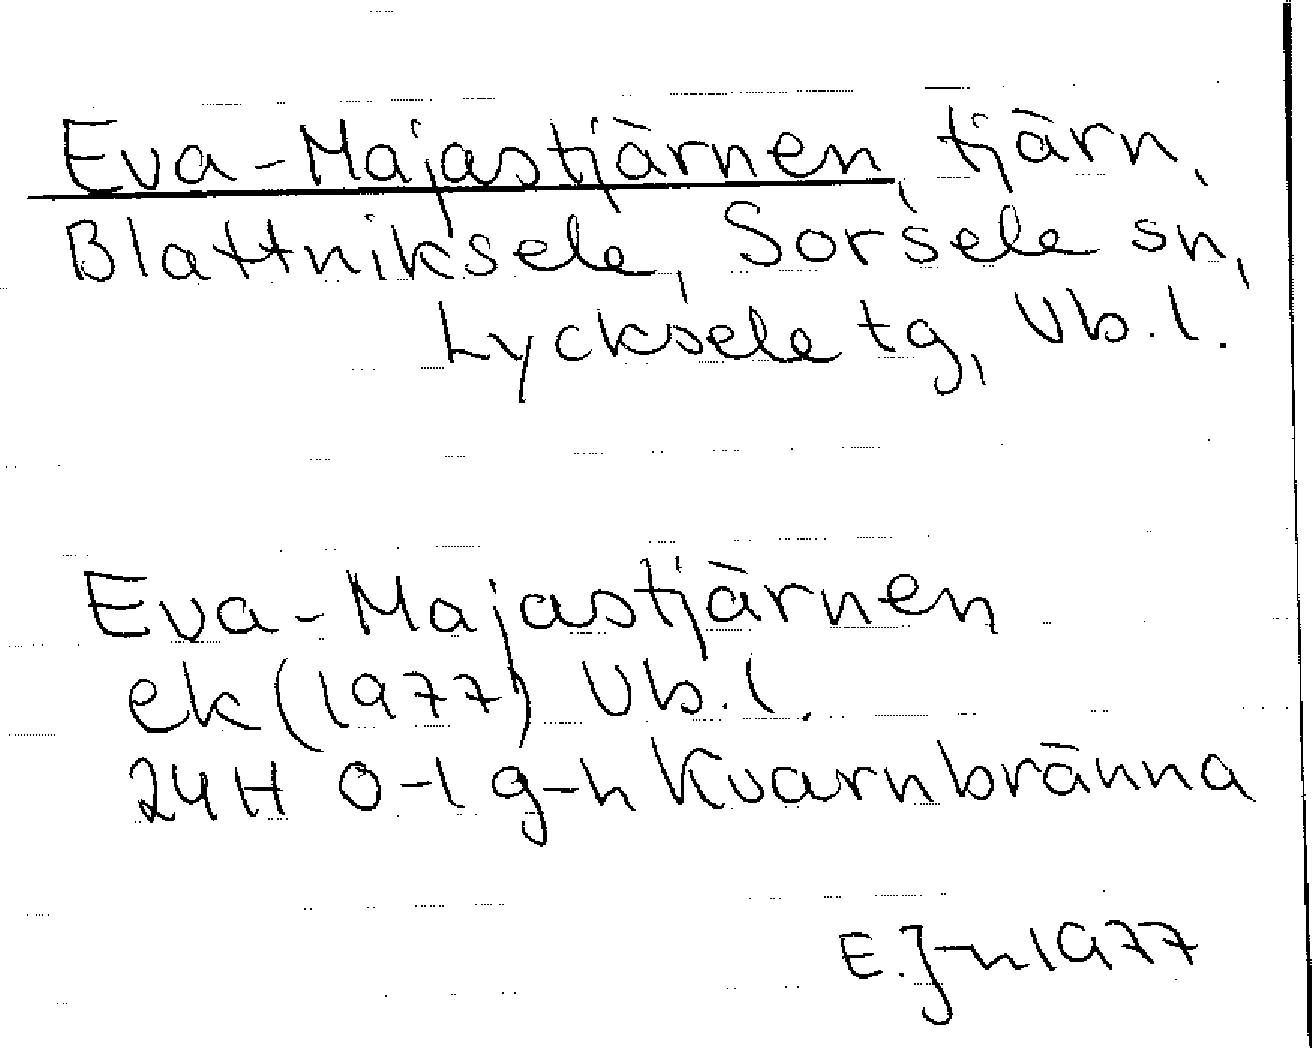 Eva-Majastjärnen, tjärn,
Blattniksele, Sorsele sn,
Lycksele tg, Vb. l.
Eva-Majastjärnen
ek (1977) Vb. l.
24H 0-1 g-h Kvarnbränna
E. J-n 1977